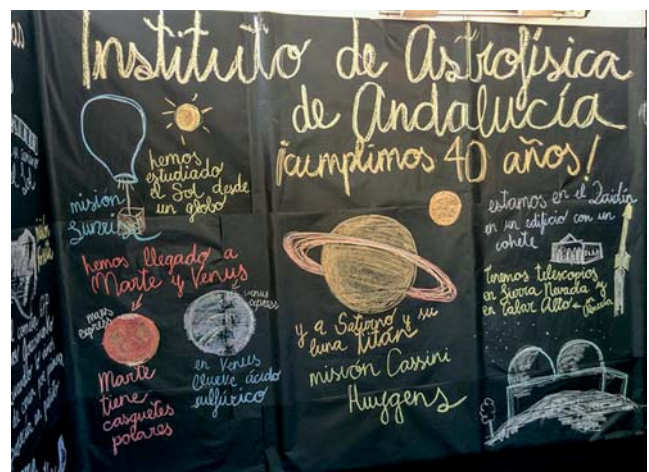 Instituto de Astrofísica
de Andalucía
¡cumplimos 40 años!
misión
Sunrise
hemos
estudiado
el Sol desde
un globo
hemos llegado a
Marte y Venus
mars
express
venus
express
Marte
tiene
casquetes
polares
en Venus
llueve ácido
sulfúrico
y a Saturno y su
luna Titán
misión Cassini
Huygens
estamos en el Zaidín
en un edificio con un
cohete
Tenemos telescopios
en Sierra Nevada y
en Calar Alto